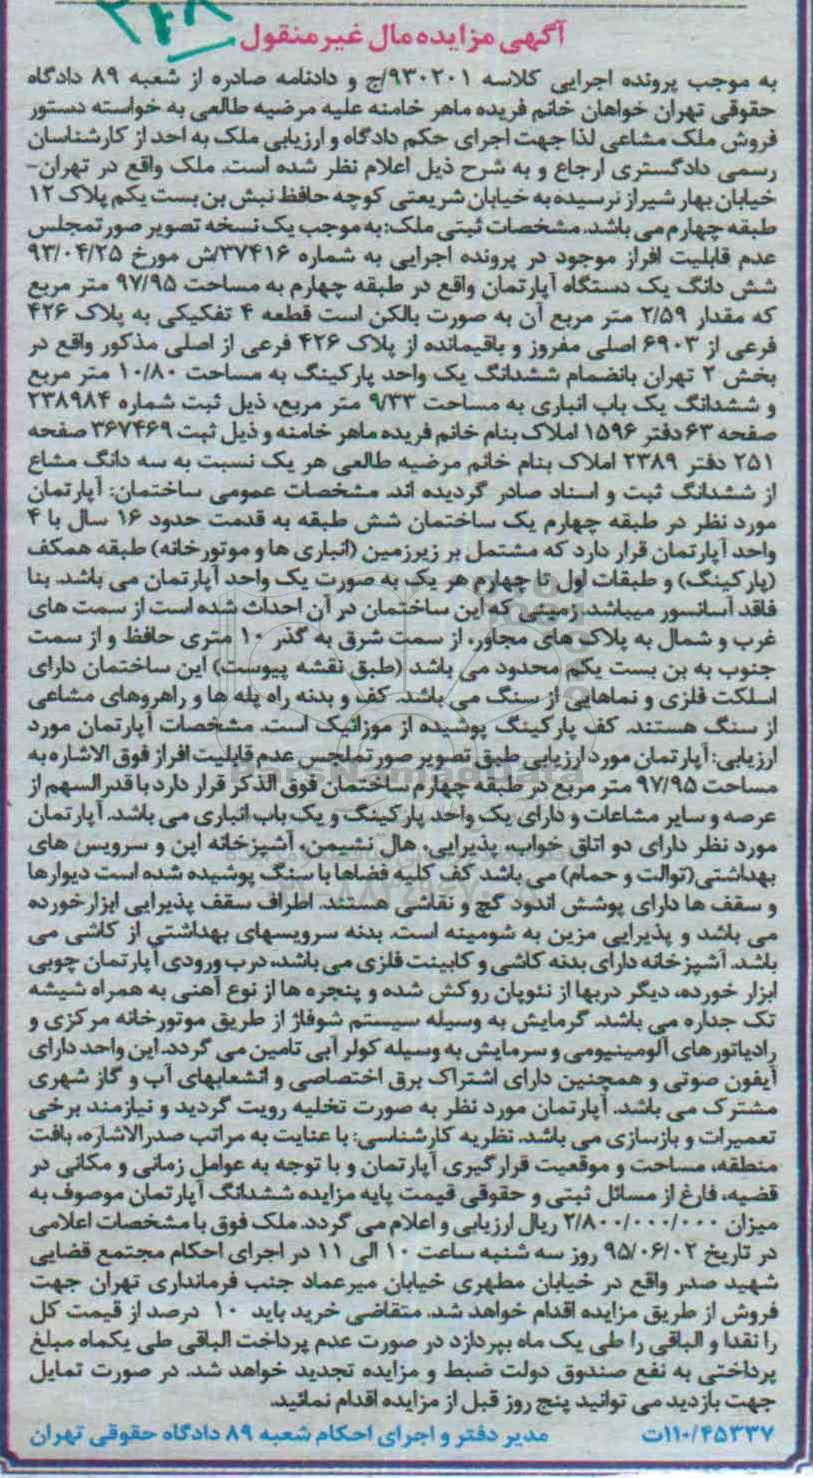 ۲۶۸
آگهی مزایده مال غیر منقول
به موجب پرونده اجرایی کلاسه ۹۳۰۲۰۱/ج و دادنامه صادره از شعبه ۸۹ دادگاه
حقوقی تهران خواهان خانم فریده ماهر خامنه علیه مرضیه طالعی به خواسته دستور
فروش ملک مشاعی لذا جهت اجرای حکم دادگاه و ارزیابی ملک به احد از کارشناسان
رسمی دادگستری ارجاع و به شرح ذیل اعلام نظر شده است. ملک واقع در تهران-
خیابان بهار شیراز نرسیده به خیابان شریعتی کوچه حافظ نبش بن بست یکم پلاک ۱۲
طبقه چهارم می باشد. مشخصات ثبتی ملک: به موجب یک نسخه تصویر صورتمجلس
عدم قابلیت افراز موجود در پرونده اجرایی به شماره ۳۷۴۱۶/ش مورخ ۹۳/۰۴/۲۵
شش دانگ یک دستگاه آپارتمان واقع در طبقه چهارم به مساحت ۹۷/۹۵ متر مربع
که مقدار ۲/۵۹ متر مربع آن به صورت بالکن است قطعه ۴ تفکیکی به پلاک ۴۲۶
فرعی از ۶۹۰۳ اصلی مفروز و باقیمانده از پلاک ۴۲۶ فرعی از اصلی مذکور واقع در
بخش ۲ تهران بانضمام ششدانگ یک واحد پارکینگ به مساحت ۱۰/۸۰ متر مربع
و ششدانگ یک باب انباری به مساحت ۹/۳۳ متر مربع، ذیل ثبت شماره ۲۳۸۹۸۴
صفحه ۶۳ دفتر ۱۵۹۶ املاک بنام خانم فریده ماهر خامنه و ذیل ثبت ۳۶۷۴۶۹ صفحه
۲۵۱ دفتر ۲۳۸۹ املاک بنام خانم مرضیه طالعی هر یک نسبت به سه دانگ مشاع
از ششدانگ ثبت و اسناد صادر گردیده اند. مشخصات عمومی ساختمان: آپارتمان
مورد نظر در طبقه چهارم یک ساختمان شش طبقه به قدمت حدود ۱۶ سال با ۴
واحد آپارتمان قرار دارد که مشتمل بر زیرزمین (انباری ها و موتورخانه) طبقه همکف
(پارکینگ) و طبقات اول تا چهارم هر یک به صورت یک واحد آپارتمان می باشد. بنا
فاقد آسانسور میباشد. زمینی که این ساختمان در آن احداث شده است از سمت های
غرب و شمال به پلاک های مجاور، از سمت شرق به گذر ۱۰ متری حافظ و از سمت
جنوب به بن بست یکم محدود می باشد (طبق نقشه پیوست) این ساختمان دارای
اسلکت فلزی و نماهایی از سنگ می باشد. کف و بدنه راه پله ها و راهروهای مشاعی
از سنگ هستند. کف پارکینگ پوشیده از موزائیک است. مشخصات آپارتمان مورد
ارزیابی: آپارتمان مورد ارزیابی طبق تصویر صورتملجس عدم قابلیت افراز فوق الاشاره به
مساحت ۹۷/۹۵ متر مربع در طبقه چهارم ساختمان فوق الذکر قرار دارد با قدرالسهم از
عرصه و سایر مشاعات و دارای یک واحد پارکینگ و یک باب انباری می باشد. آپارتمان
مورد نظر دارای دو اتاق خواب، پذیرایی، هال نشیمن، آشپزخانه اپن و سرویس های
بهداشتی(توالت و حمام) می باشد کف کلیه فضاها با سنگ پوشیده شده است دیوارها
و سقف ها دارای پوشش اندود گچ و نقاشی هستند. اطراف سقف پذیرایی ابزارخورده
می باشد و پذیرایی مزین به شومینه است. بدنه سرویسهای بهداشتی از کاشی می
باشد. آشپزخانه دارای بدنه کاشی و کابینت فلزی می باشد، درب ورودی آپارتمان چوبی
ابزار خورده، دیگر دربها از نئوپان روکش شده و پنجره ها از نوع آهنی به همراه شیشه
تک جداره می باشد. گرمایش به وسیله سیستم شوفاژ از طریق موتورخانه مرکزی و
رادیاتورهای آلومینیومی و سرمایش به وسیله کولر آبی تامین می گردد. این واحد دارای
آیفون صوتی و همچنین دارای اشتراک برق اختصاصی و انشعابهای آب و گاز شهری
مشترک می باشد. آپارتمان مورد نظر به صورت تخلیه رویت گردید و نیازمند برخی
تعمیرات و بازسازی می باشد. نظریه کارشناسی: با عنایت به مراتب صدرالاشاره، بافت
منطقه، مساحت و موقعیت قرارگیری آپارتمان و با توجه به عوامل زمانی و مکانی در
قضیه، فارغ از مسائل ثبتی و حقوقی قیمت پایه مزایده ششدانگ آپارتمان موصوف به
میزان ۲/۸۰۰/۰۰۰/۰۰۰ ریال ارزیابی و اعلام می گردد. ملک فوق با مشخصات اعلامی
در تاریخ ۹۵/۰۶/۰۲ روز سه شنبه ساعت ۱۰ الی ۱۱ در اجرای احکام مجتمع قضایی
شهید صدر واقع در خیابان مطهری خیابان میرعماد جنب فرمانداری تهران جهت
فروش از طریق مزایده اقدام خواهد شد. متقاضی خرید باید ۱۰ درصد از قیمت کل
را نقدا و الباقی را طی یک ماه بپردازد در صورت عدم پرداخت الباقی طی یکماه مبلغ
پرداختی به نفع صندوق دولت ضبط و مزایده تجدید خواهد شد. در صورت تمایل
جهت بازدید می توانید پنج روز قبل از مزایده اقدام نمائید.
۱۱۰/۴۵۳۳۷ت مدیر دفتر و اجرای احکام شعبه ۸۹ دادگاه حقوقی تهران
ParsNamadData